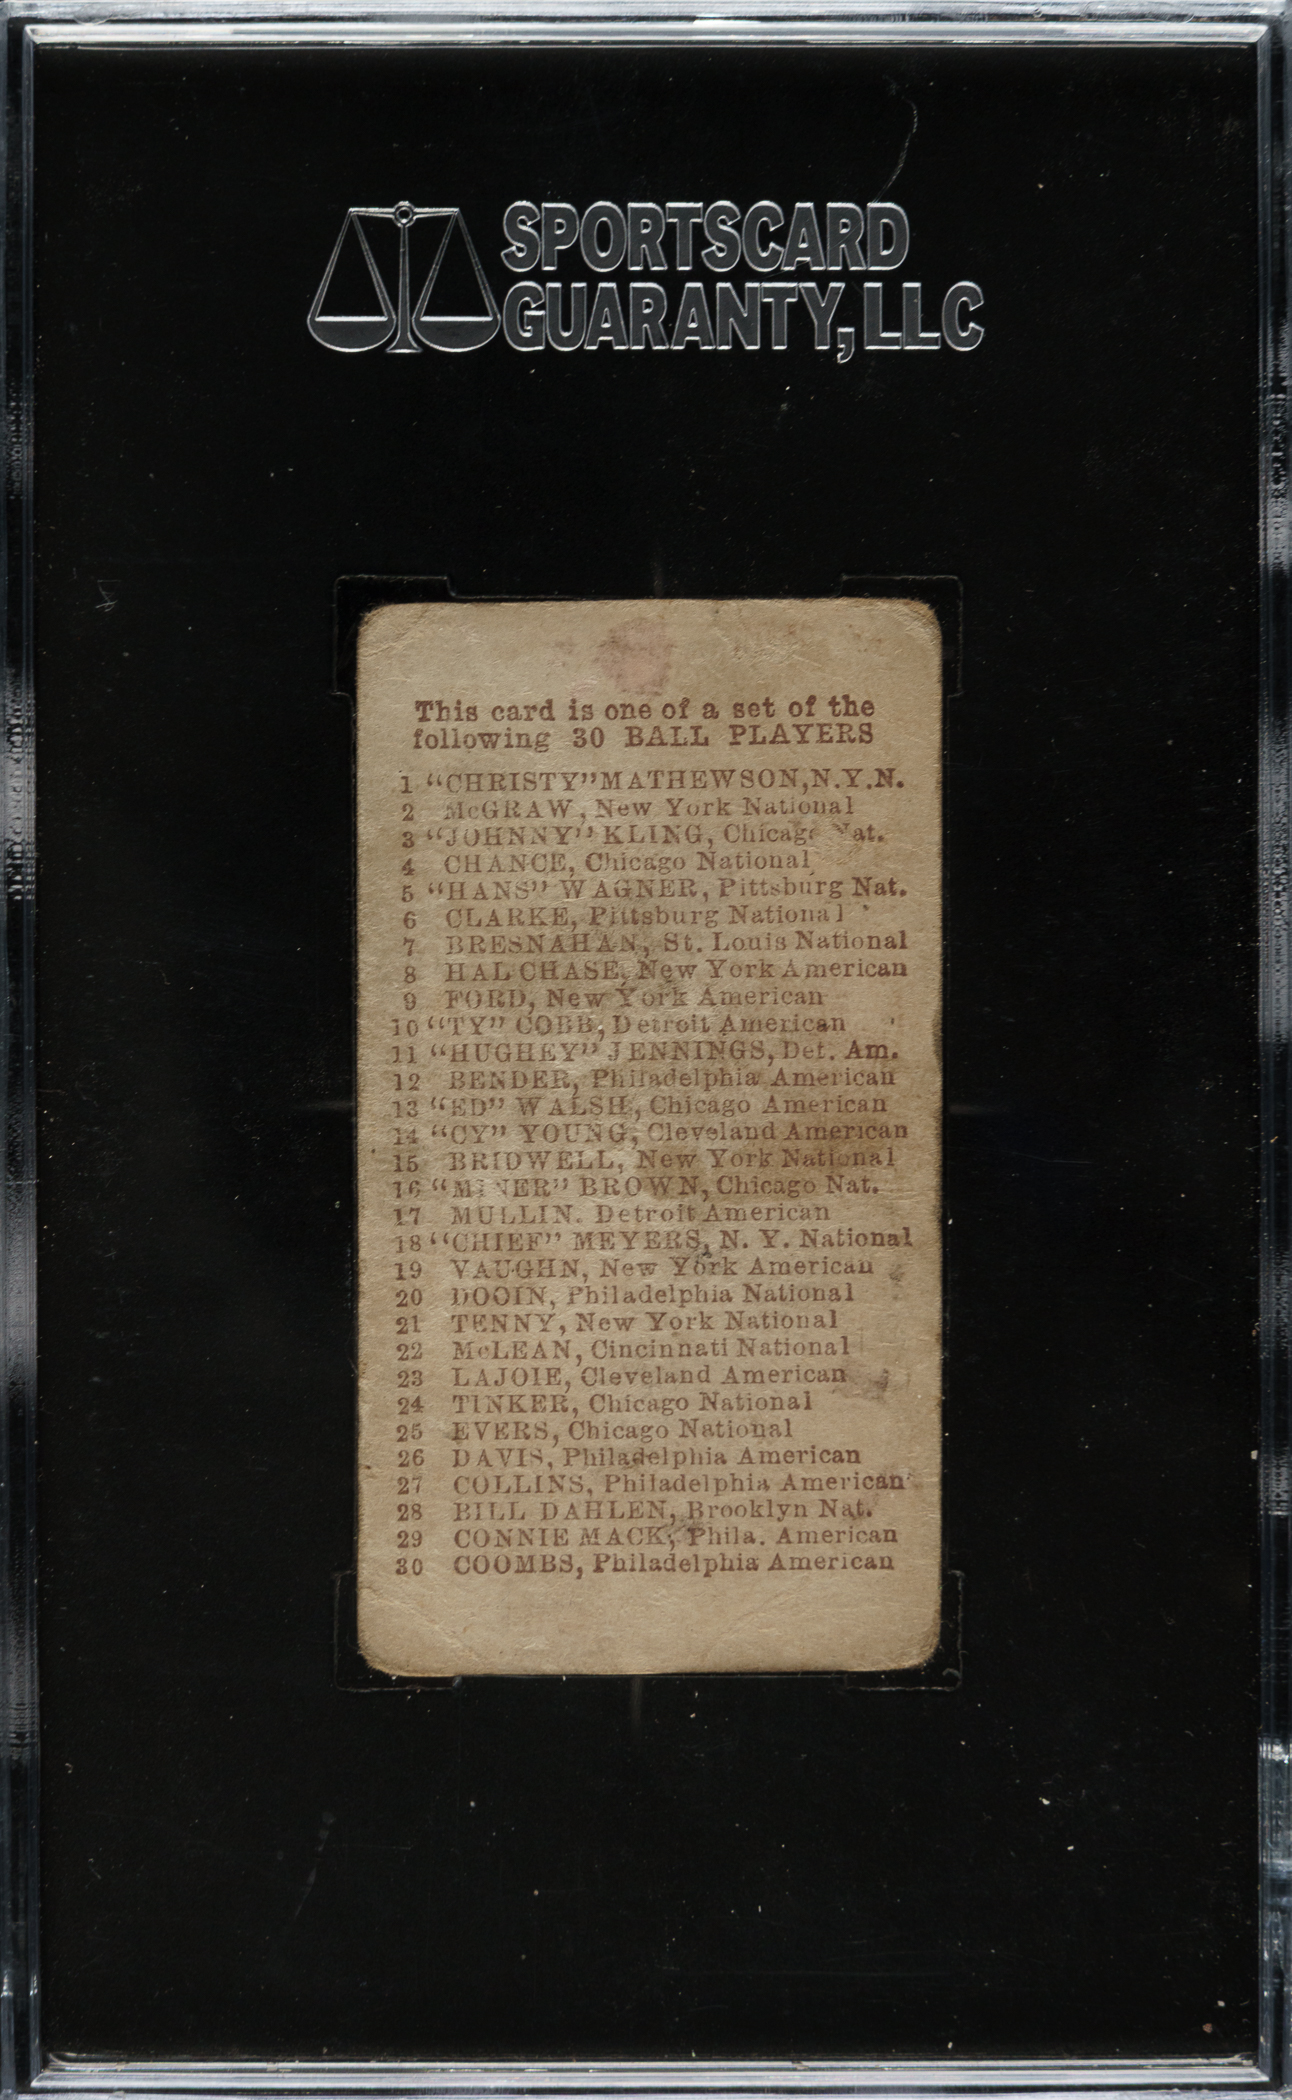 SPORTSCARD
GUARANTY, LLC
This card is one of a set of the
following 30 BALL PLAYERS
1 "CHRISTY" MATHEWSON, N.Y.N.
2 McGRAW, New York National
3 "JOHNNY" KLING, Chicago Nat.
4 CHANCE, Chicago National
5 "HANS" WAGNER, Pittsburg Nat.
6 CLARKE, Pittsburg National
7 BRESNAHAN, St. Louis National
8 HAL CHASE, New York American
9 FORD, New York American
10 "TY" COBB, Detroit American
11 "HUGHEY" JENNINGS, Det. Am.
12 BENDER, Philadelphia American
13 "ED" WALSH, Chicago American
14 "CY" YOUNG, Cleveland American
15 BRIDWELL, New York National
16 "MINER" BROWN, Chicago Nat.
17 MULLIN. Detroit American
18 "CHIEF" MEYERS, N. Y. National
19 VAUGHN, New York American
20 DOOIN, Philadelphia National
21 TENNY, New York National
22 McLEAN, Cincinnati National
23 LAJOIE, Cleveland American
24 TINKER, Chicago National
25 EVERS, Chicago National
26 DAVIS, Philadelphia American
27 COLLINS, Philadelphia American
28 BILL DAHLEN, Brooklyn Nat.
29 CONNIE MACK, Phila. American
30 COOMBS, Philadelphia American